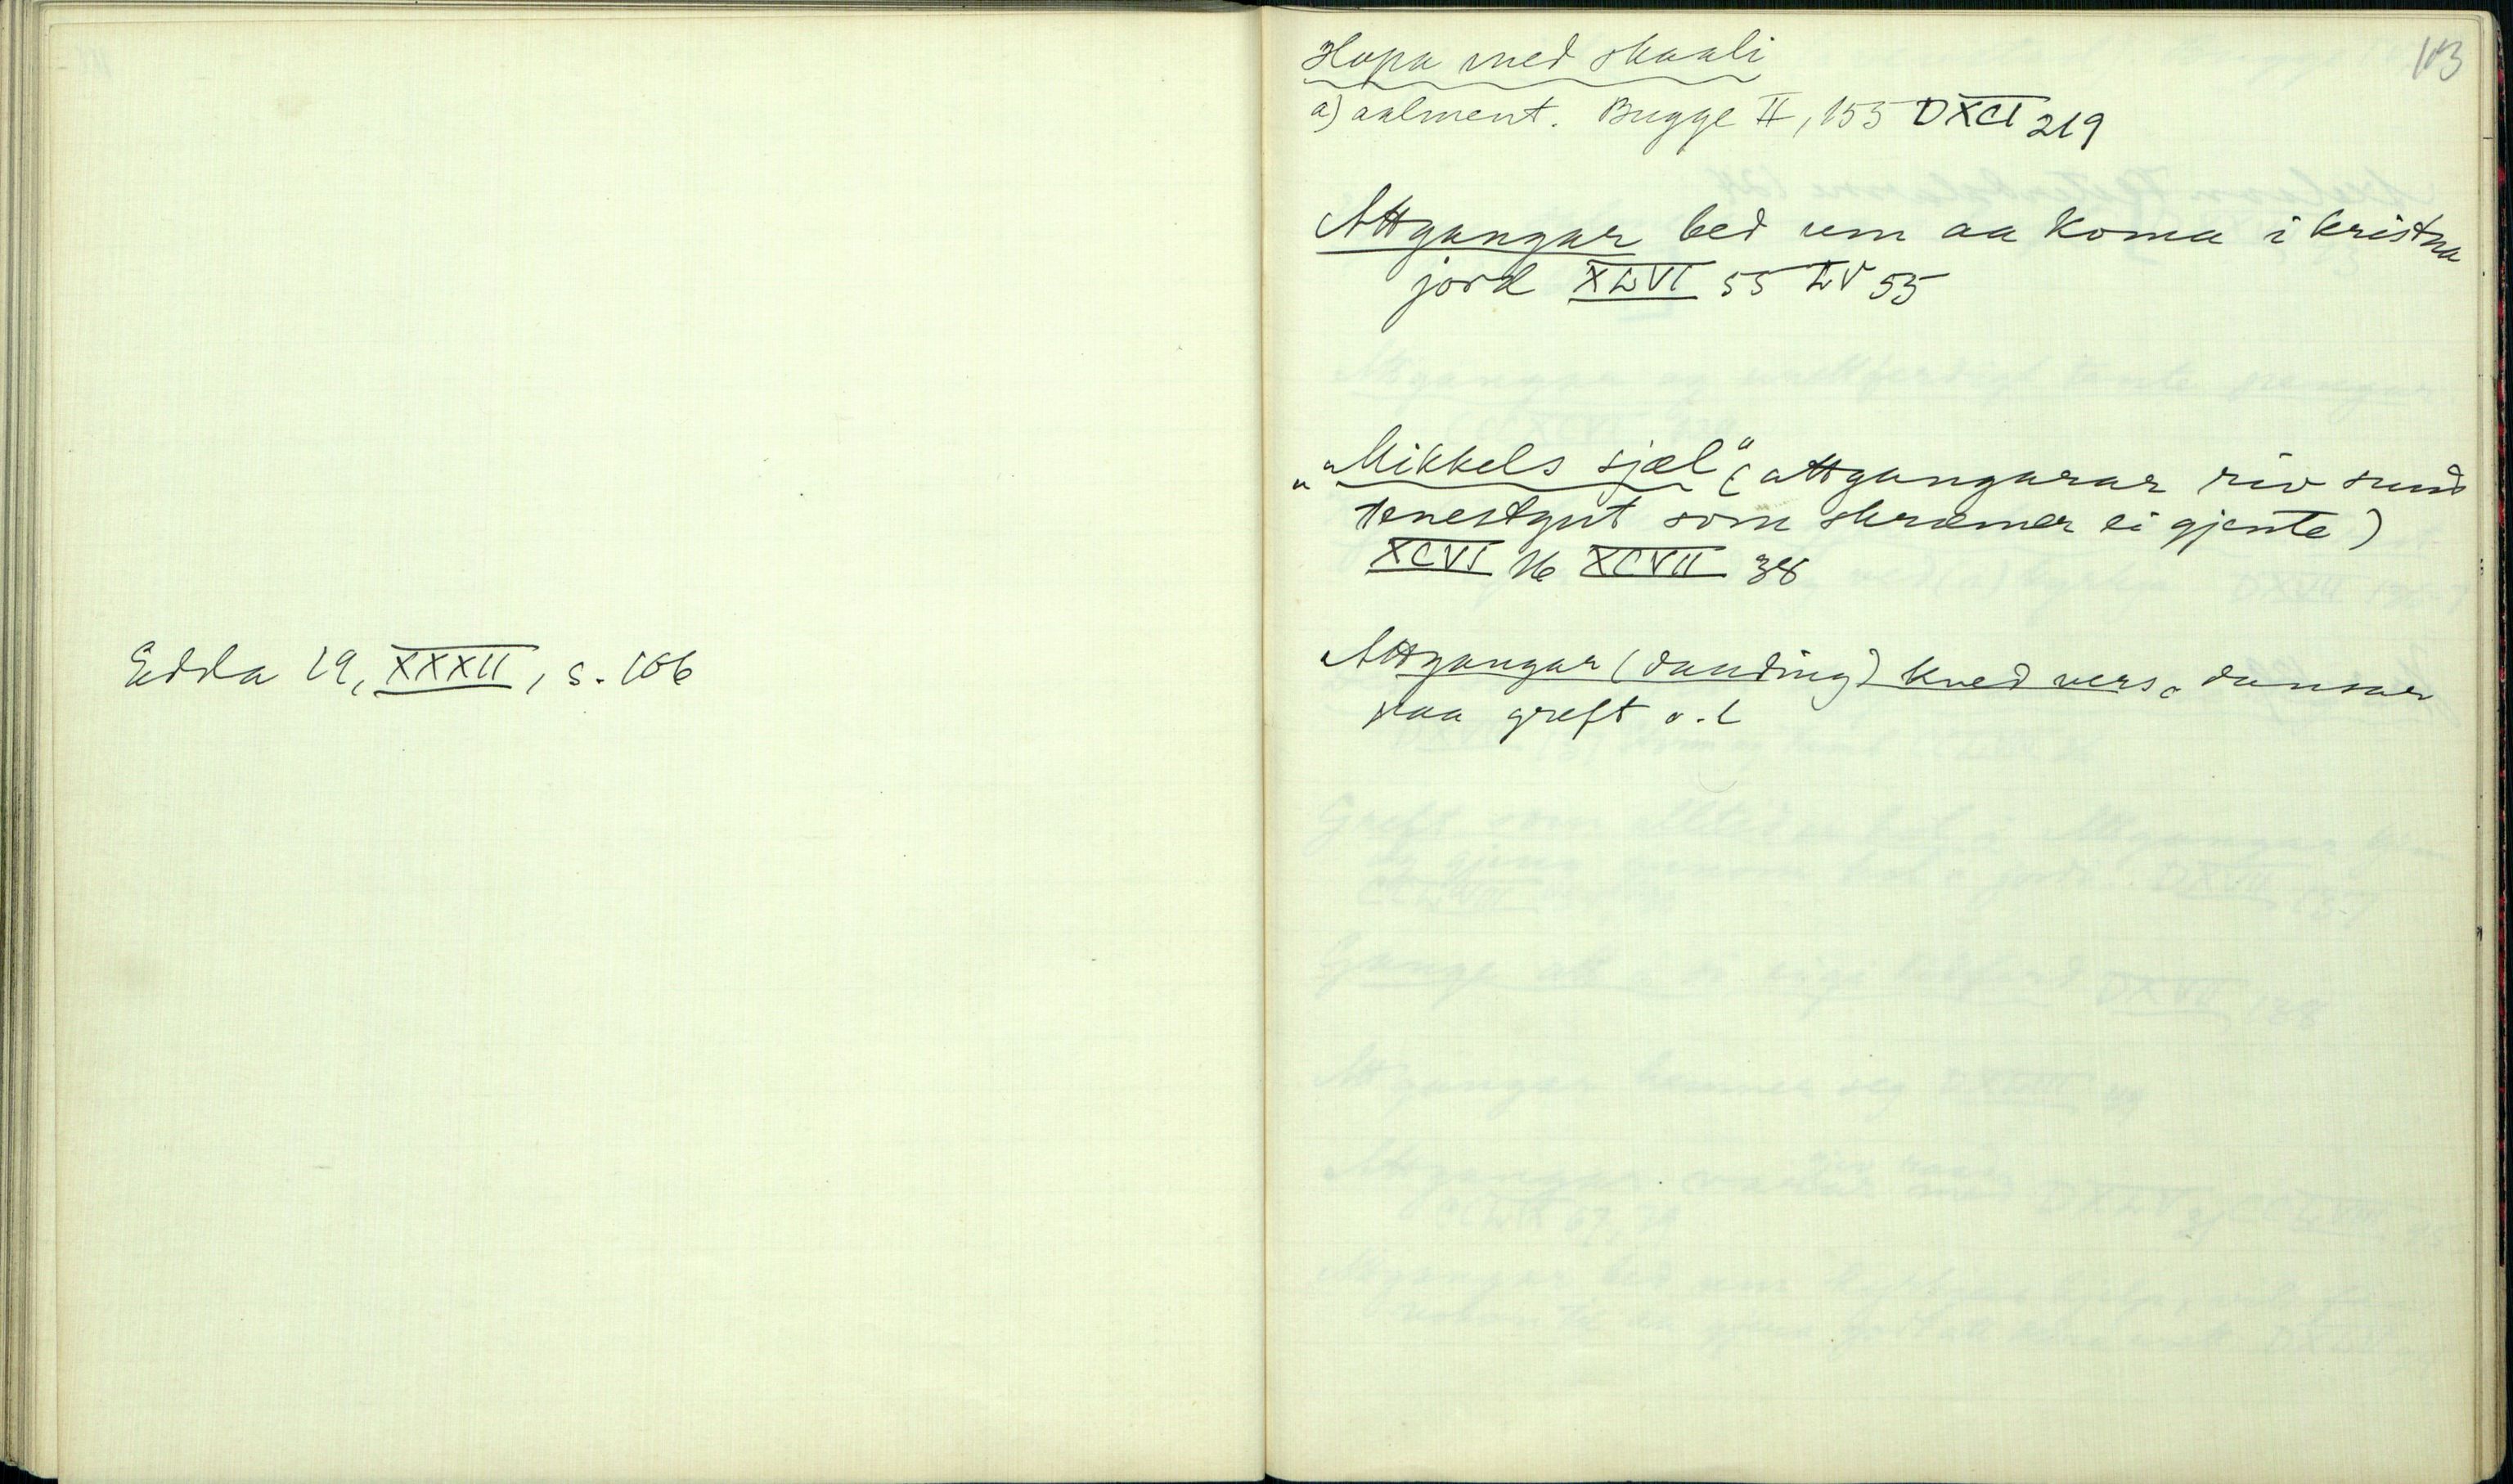 Edda 19, XXXII, s. 106
113
Hopa med skaali
a) aalment. Bugge II, 155 DXCI 219
Attgangar bed um aa koma i kristna
jord XLVI 55 LV 55
"Mikkels sjæl" (attgangarar riv sund
tenestgut som skræmer ei gjente)
XCVI 16 XCVII 38
Attgangar (dauding) kved vers, dansar
paa greft o.l